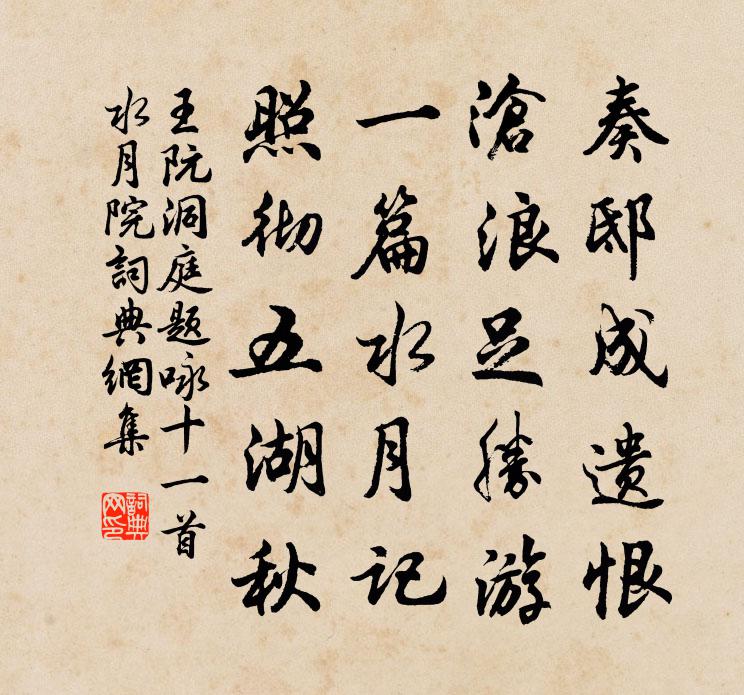 奏邸成遗恨
滄浪足勝游
一篇水月记
照彻五湖秋
王阮洞庭题咏十一首
水月院詞典網集
詞典网印